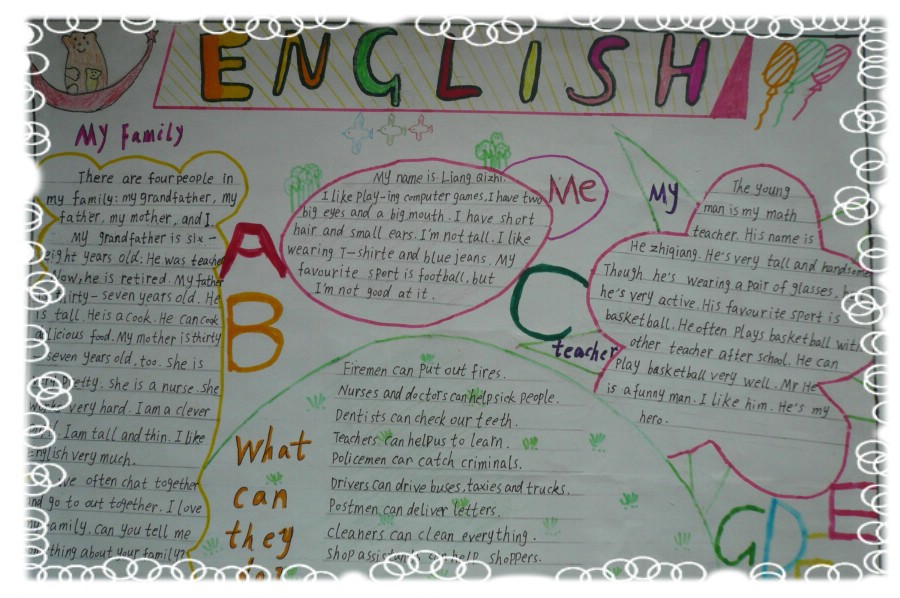 ENGLISH
My Family
There are four people in
my family: my grandfather, my
father, my mother, and I.
My grandfather is six-
eight years old. He was teacher
Now, he is retired. My father
thirty-seven years old. He
is tall. He is a cook. He can cook
licious food. My mother is thirty
seven years old, too. She is
very pretty. she is a nurse. she
very hard. I am a clever
I am tall and thin. I like
English very much.
We often chat together
and go to out together. I love
my family. Can you tell me
thing about your family?
A
B
My name is Liang qizhi.
I like play-ing computer games, I have two
big eyes and a big mouth. I have short
hair and small ears. I'm not tall. I like
wearing T-shirte and blue jeans. My
favourite sport is football, but
I'm not good at it.
Me
C
My
teacher
The young
man is my math
teacher. His name is
He zhiqiang. He's very tall and handsome
Though he's wearing a pair of glasses,
he's very active. His favourite sport is
basketball. He often plays basketball with
other teacher after school. He can
play basketball very well. Mr He
is a funny man. I like him. He's my
hero.
What
can
they
Firemen can put out fires.
Nurses and doctors can help sick people.
Dentists can check our teeth.
Teachers can help us to learn.
Policemen can catch criminals.
Drivers can drive buses, taxies and trucks.
Postmen can deliver letters.
cleaners can clean everything.
shop assistants can help shoppers.
G
D
E